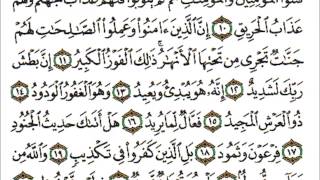 فَتَنُوا الْمُؤْمِنِينَ وَالْمُؤْمِنَاتِ ثُمَّ لَمْ يَتُوبُوا فَلَهُمْ عَذَابُ جَهَنَّمَ وَلَهُمْ
عَذَابُ الْحَرِيقِ ١٠ إِنَّ الَّذِينَ ءَامَنُوا وَعَمِلُوا الصَّٰلِحَٰتِ لَهُمْ
جَنَّٰتٌ تَجْرِى مِن تَحْتِهَا الْأَنْهَٰرُ ذَٰلِكَ الْفَوْزُ الْكَبِيرُ ١١ إِنَّ بَطْشَ
رَبِّكَ لَشَدِيدٌ ١٢ إِنَّهُۥ هُوَ يُبْدِئُ وَيُعِيدُ ١٣ وَهُوَ الْغَفُورُ الْوَدُودُ ١٤
ذُو الْعَرْشِ الْمَجِيدُ ١٥ فَعَّالٌ لِّمَا يُرِيدُ ١٦ هَلْ أَتَىٰكَ حَدِيثُ الْجُنُودِ
١٧ فِرْعَوْنَ وَثَمُودَ ١٨ بَلِ الَّذِينَ كَفَرُوا فِى تَكْذِيبٍ ١٩ وَاللَّهُ مِن